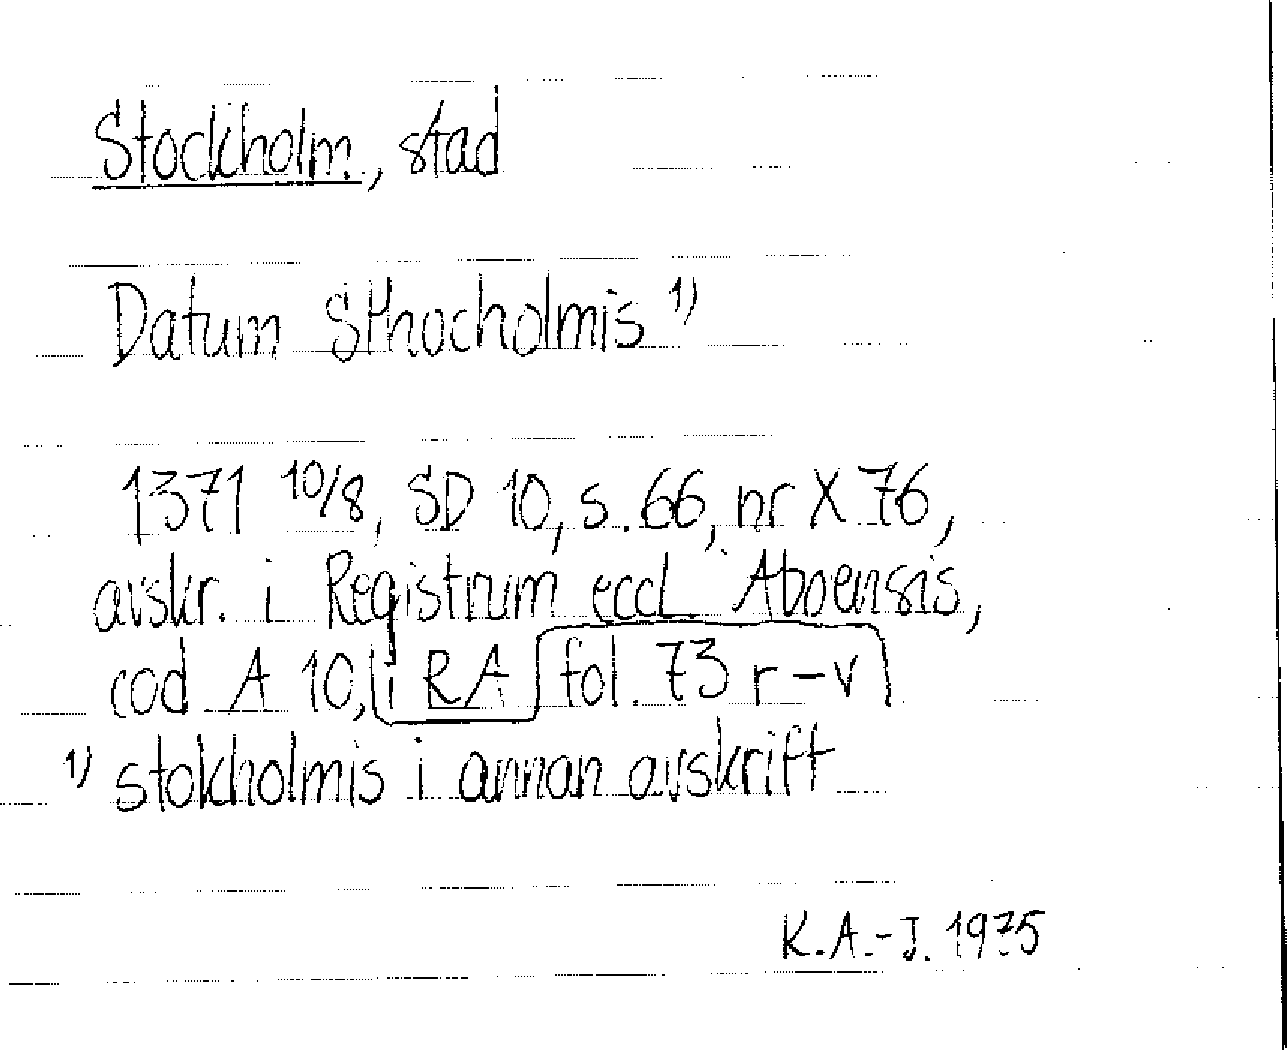 Stockholm, stad
Datum Sthocholmis 1)
1371 10/8, SD 10, s. 66, nr X 76,
avskr. i Registrum eccl. Aboensis,
cod A 10, i RA fol. 73 r-v
1) stokholmis i annan avskrift
K.A.-J. 1975